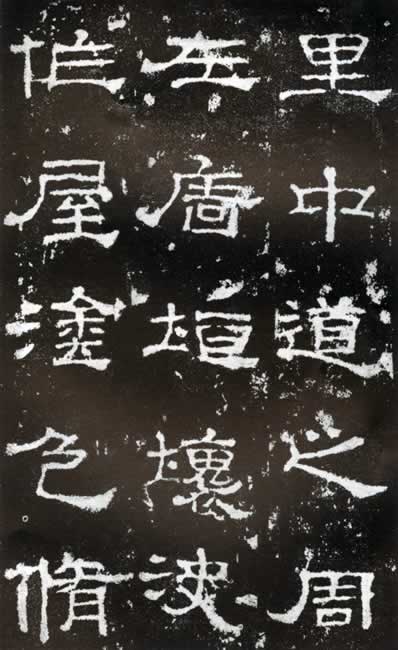 里中道之周
左廧垣壞決
作屋塗色脩